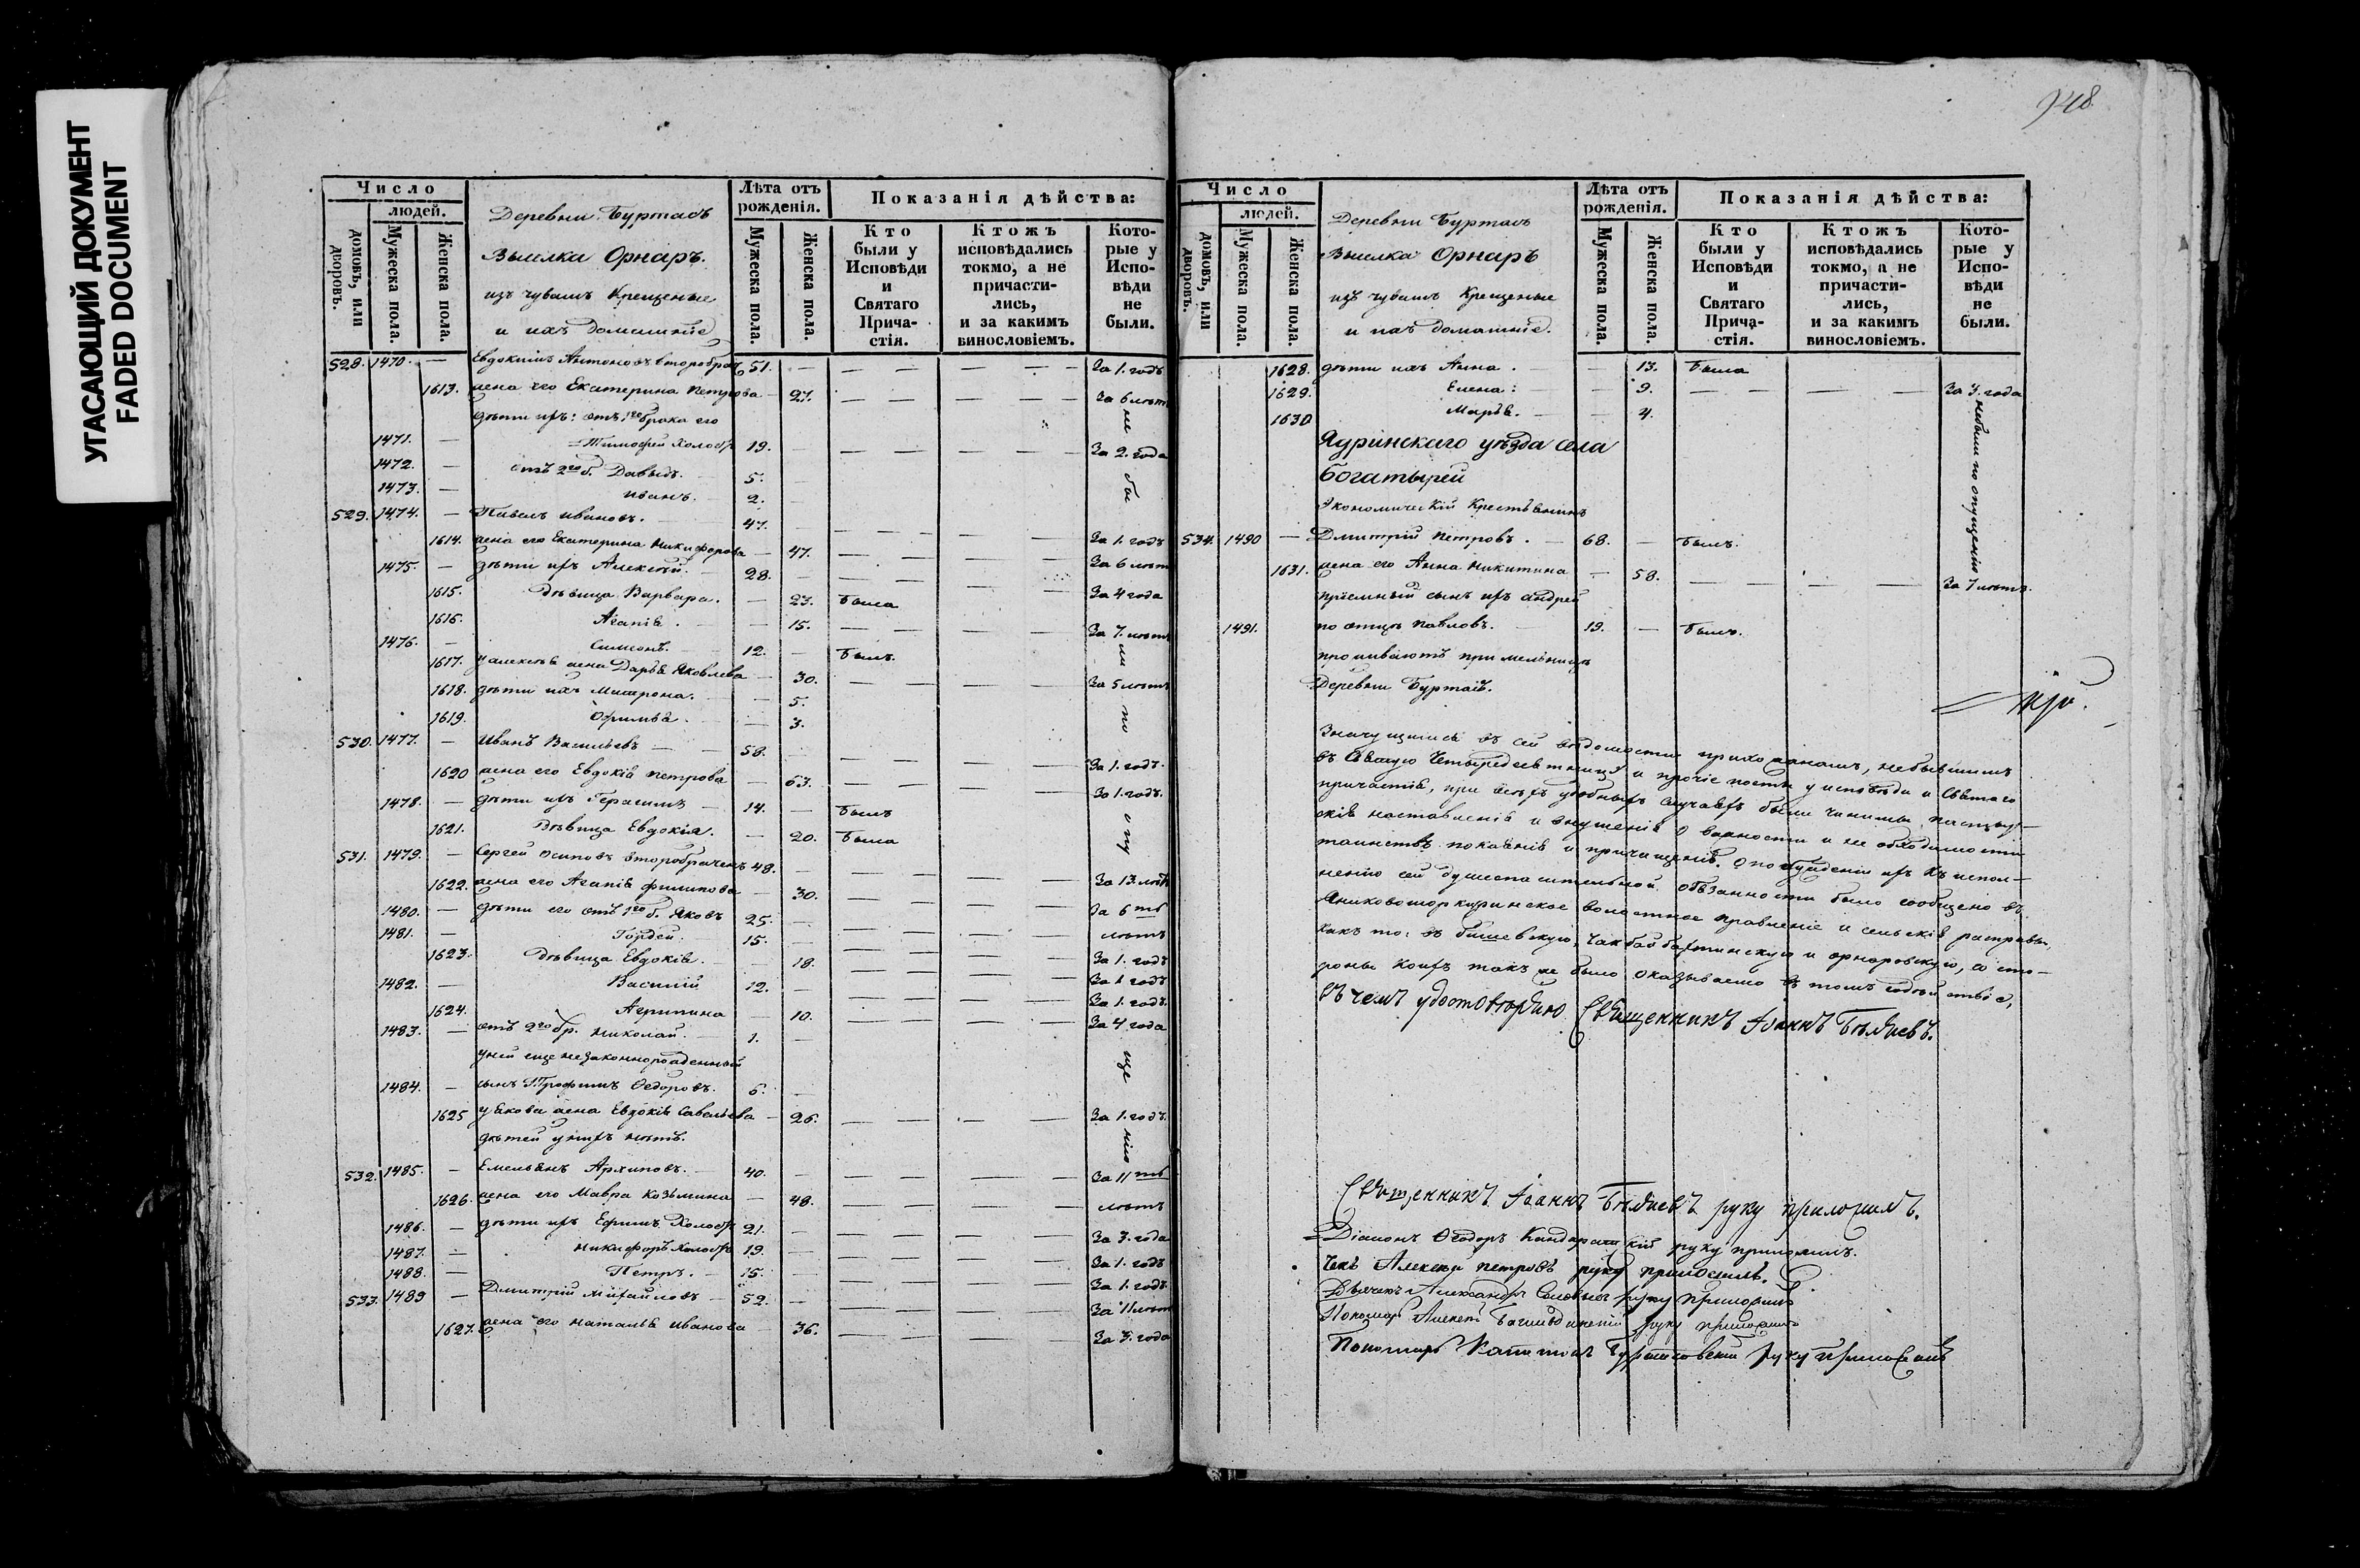 УГАСАЮЩИЙ ДОКУМЕНТ
FADED DOCUMENT
Число
людей.
домовъ, или дворовъ.
Мужеска пола.
Женска пола.
Деревни Буртасъ
Выселка Орнаръ.
изъ чувашъ Крещеные
и ихъ домашніе
Лѣта отъ рожденія.
Мужеска пола.
Женска пола.
Показанія дѣйства:
Кто были у Исповѣди и Святаго Прича-стія.
Ктожъ исповѣдались токмо, а не причасти-лись, и за какимъ винословіемъ.
Кото-рые у Испо-вѣди не были.
528. 1470. — Евдокимъ Антоновъ второбрач. 51. — За 1. годъ
1613. жена его Екатерина Петрова — 27. За 6 лѣтъ
дѣти ихъ: отъ 1го брака его
1471. — Тимофей Холостъ 19. — За 2. года
1472. — отъ 2го б. Давыдъ. 5.
1473. — Иванъ. 2.
529. 1474. — Павелъ Ивановъ. 47. За 1. годъ
1614. жена его Екатерина Никифорова — 47. За 6 лѣтъ
1475. — дѣти ихъ Алексѣй. 28. — За 4 года
1615. Дѣвица Варвара. — 23. Была
1616. Агапія. — 15. За 7. лѣтъ
1476. — Симеонъ. 12. — Былъ.
1617. у Алексѣя жена Дарья Яковлева — 30. За 5 лѣтъ
1618. дѣти ихъ Матрона. — 5.
1619. Офимья. — 3.
530. 1477. — Иванъ Васильевъ — 58. За 1. годъ.
1620 жена его Евдокія Петрова — 63. За 1. годъ.
1478. — дѣти ихъ Герасимъ 14. — Былъ
1621. Дѣвица Евдокія. — 20. Была
531. 1479. — Сергей Осиповъ второбраченъ 48. За 13. лѣтъ
1622. жена его Агапія Филипова — 30. За 6ть лѣтъ
1480. — дѣти его отъ 1го б. Яковъ 25. — За 1. годъ
1481. — Гордей. 15. — За 1 годъ
1623. Дѣвица Евдокія. — 18. За 1. годъ.
1482. — Василій 12. — За 4 года
1624. Агрипина — 10.
1483. — отъ 2го бр. Николай. 1. —
у ней еще незаконнорожденный
1484. — сынъ Трофимъ Ѳедоровъ. 6. —
1625 у Якова жена Евдокія Савельева — 26. За 1. годъ.
дѣтей у нихъ нѣтъ.
532. 1485. — Емельянъ Архиповъ. 40. — За 11ть лѣтъ
1626. жена его Мавра Козьмина — 48. За 3. года
1486. — дѣти ихъ Ефимъ Холостъ 21. — За 1. годъ
1487. — Никифоръ Холостъ 19. — За 1. годъ.
1488. — Петръ. 15.
533. 1489 — Дмитрій Михайловъ 52. — За 11 лѣтъ
1627. жена его Наталья Иванова 36. За 3. года
не бы ли по опу ще нію
948
Число
людей.
домовъ, или дворовъ.
Мужеска пола.
Женска пола.
Деревни Буртасъ
Выселка Орнаръ
изъ чувашъ Крещеные
и ихъ домашніе.
Лѣта отъ рожденія.
Мужеска пола.
Женска пола.
Показанія дѣйства:
Кто были у Исповѣди и Святаго Прича-стія.
Ктожъ исповѣдались токмо, а не причасти-лись, и за какимъ винословіемъ.
Кото-рые у Испо-вѣди не были.
1628. дѣти ихъ Анна. — 13. Была
1629. Елена: — 9. За 3. года
1630 Марья. — 4.
небыли по опущенію
Ядринскаго уѣзда села
Богатырей
Экономическій Крестьянинъ
534. 1490 — Дмитрій Петровъ. — 68. — Былъ.
1631. жена его Анна Никитина — 58. За 7 лѣтъ.
пріемный сынъ ихъ Андрей
1491. по отцѣ Павловъ. 19. — Былъ.
проживаютъ при мельницѣ
Деревни Буртасъ.
Значущимся въ сей вѣдомости прихожанамъ, небывшимъ
въ Святую Четыредесятницу и прочіе посты у исповѣди и Святаго
причастія, при всѣхъ удобныхъ случаяхъ были чинимы пастыр-
скія наставленія и внушенія о важности и необходимости
таинствъ покаянія и причащенія. О побужденіи ихъ къ испол-
ненію сей душеспасительной обязанности было сообщено въ
волостное правленіе и сельскія расправы,
какъ то: въ и орнаровскую, со сто-
роны коихъ такъ же было оказываемо въ томъ содѣйствіе,
въ чемъ удостовѣряю Священникъ Іоаннъ Бѣляевъ.
Священникъ Іоаннъ Бѣляевъ руку приложилъ.
Діаконъ Ѳеодоръ руку приложилъ.
Алексѣй Петровъ руку приложилъ.
Дьячекъ Александръ руку приложилъ
Пономарь Алексѣй руку приложилъ
Пономарь руку приложилъ